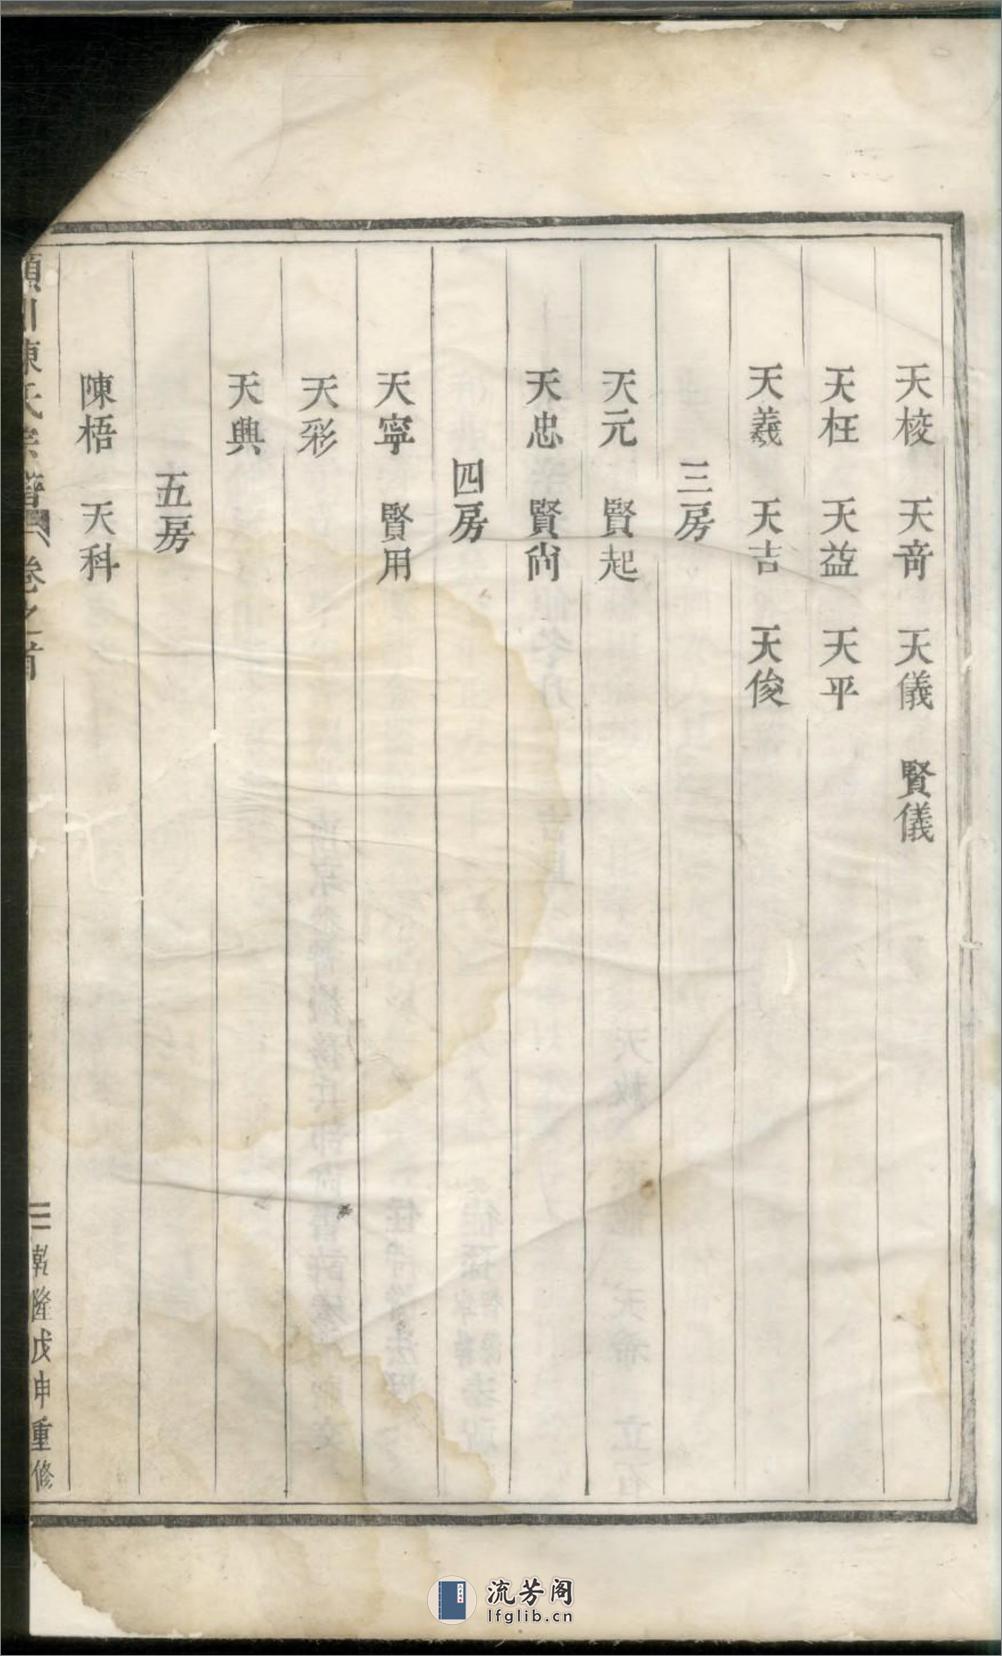 天梭 天竒 天儀 賢儀
天枉 天益 天平
天羲 天吉 天俊
三房
天元 賢起
天忠 賢尙
四房
天寧 賢用
天彩
天興
五房
陳梧 天科
潁川陳氏宗譜 卷之首
乾隆戊申重修
流芳阁
lfglib.cn